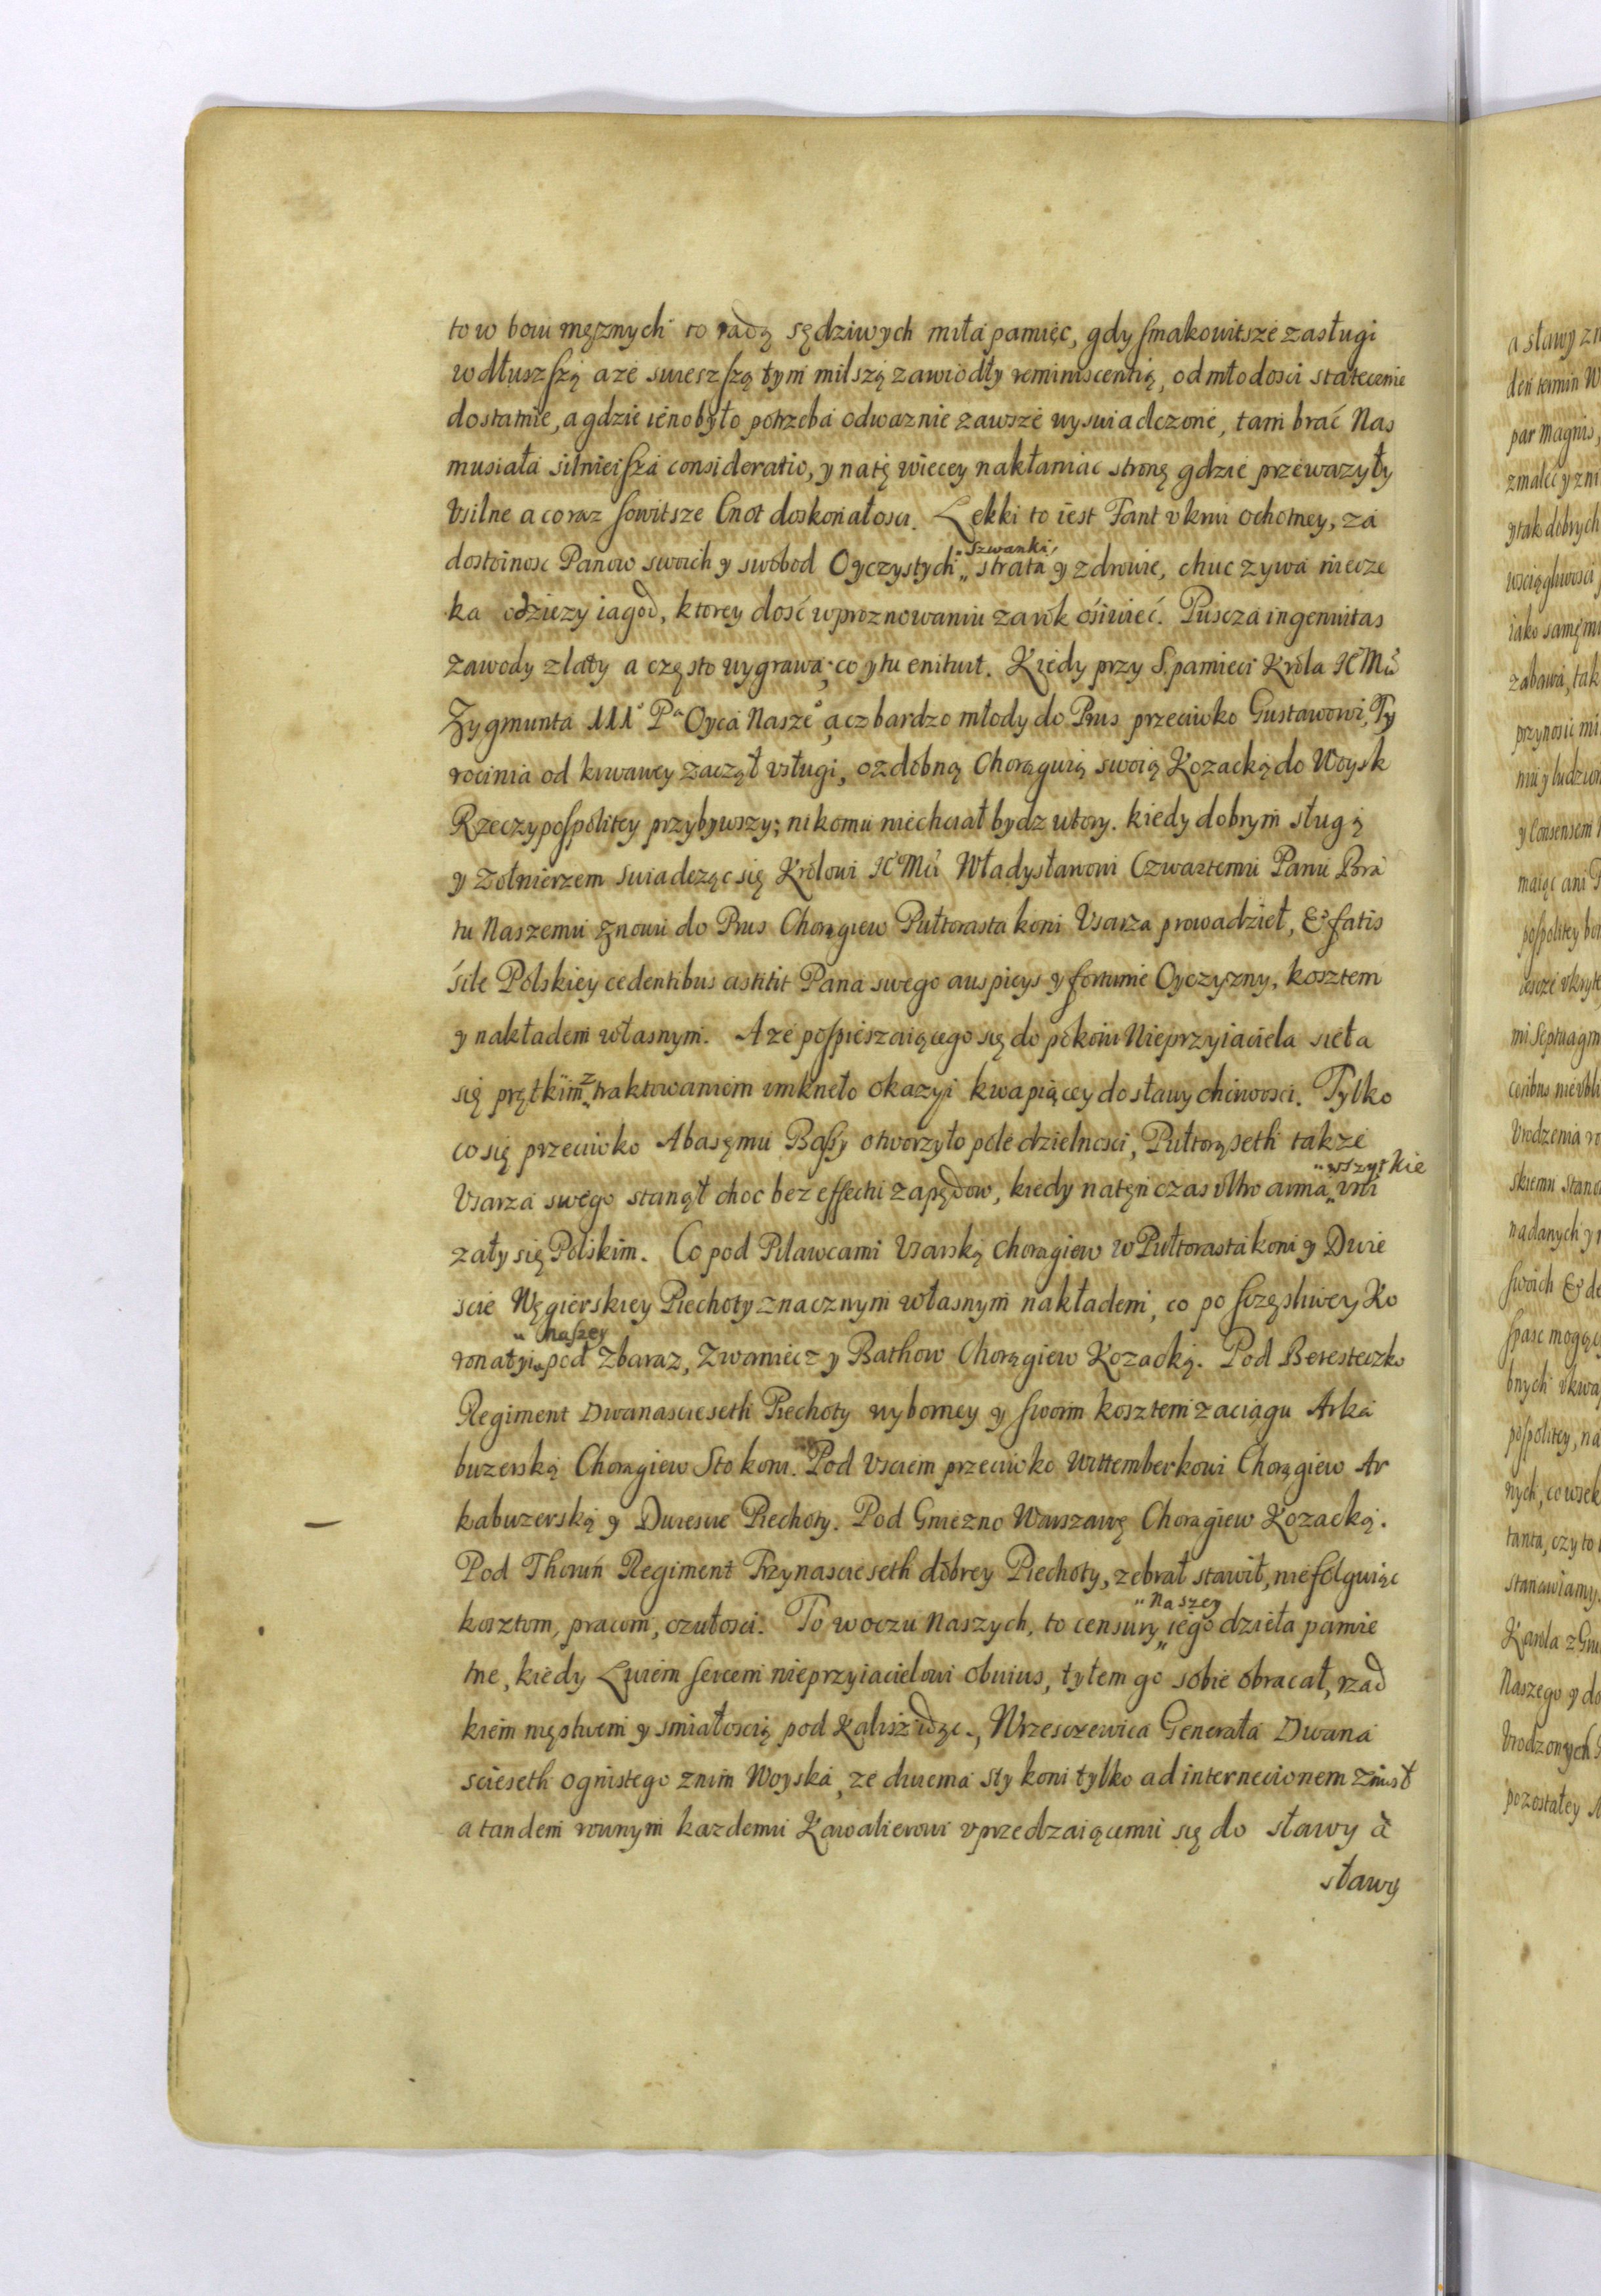 to w boiu mężnych to radę sędziwych miła pamięc, gdy smakowitsze zasługi
w dłuszszą a ze swieszszą tym milszą zawiodły reminiscentią, od młodosci statecznie
dostatnie, a gdzie ieno było potrzeba odwaznie zawsze wyswiadczone, tam brać Nas
musiała silnieisza consideratio, y natę wiecey nakłaniac stronę gdzie przewazyły
Vsilne a coraz sowitsze Cnot doskonałosci. Lekki to iest Fant vkrwi ochotney, za
dostoinosc Panow swoich y swobod Oyczystych „Szwanki, „strata y zdrowie, chuc zywa niecze
ka odziezy iagod, ktorey dość w proznowaniu zarok ośiwieć. Puscza ingenuitas
zawody zlaty a często wygrawa; co y tu enituit. Kiedy przy S. pamieci Króla JE Mci
Zygmunta III° Pa Oyca Nasze° acz bardzo młody do Prus przeciwko Gustawowi, Ty
rocinia od krwawey zaczął vsługi, ozdobną Chorągwią swoią Kozacką do Woysk
Rzeczypospolitey przybywszy; nikomu niechciał bydz wtory. kiedy dobrym sługą
y Zołnierzem swiadcząc się Królowi JE Mci Władysławowi Czwartemu Panu Bra
tu Naszemu znowu do Prus Chorągiew Pułtorasta koni Vsarza prowadzieł, & fatis
śile Polskiey cedentibus astitit Pana swego auspicys y fortunie Oyczyzny, kosztem
y nakładem własnym. A ze pospieszaiącego się do pokoiu Nieprzyiaciela sieła
się prętkim „z traktowaniem vmkneło okazyi kwapiącey do sławy chciwosci. Tylko
co się przeciwko Abasęmu Bassy otworzyło pole dzielnosci, Pułtorąseth takze
Vsarza swego stanął choc bez effectu zapędow, kiedy natęn czas vltro arma „wszytkie „vni
zały się Polskim. Co pod Pilawcami Vsarską chorągiew w Pułtorasta koni y Dwie
scie Węgierskiey Piechoty znacznym własnym nakładem, co po szczęsliwey Ko
ronatyi „Naszey „pod Zbaraz, Zwaniecz y Bathow Chorągiew Kozacką. Pod Beresteczko
Regiment Dwanascieseth Piechoty wyborney y swoim kosztem zaciągu Arka
buzerską Chorągiew Sto koni. Pod Vsciem przeciwko Wittemberkowi Chorągiew Ar
kabuzerską y Dwiescie Piechoty. Pod Gniezno Warszawę Chorągiew Kozacką.
Pod Thoruń Regiment Trzynascieseth dobrey Piechoty, zebrał stawił, niefolguiąc
kosztom, pracom, czułosci. To w oczu Naszych, to censury „Naszey „iego dzieła pamie
tne, kiedy Lwiem sercem nieprzyiacielowi obuius, tyłem go sobie obracał, rzad
kiem męstwem y smiałoscią pod Kalisz idąc, Wrzesczewica Generała Dwana
scieseth ognistego znim Woyska, ze dwiema sty koni tylko ad internecionem zniosł
a tandem rownym kazdemu Kawalierowi vprzedzaiącemu się do sławy a
sławy